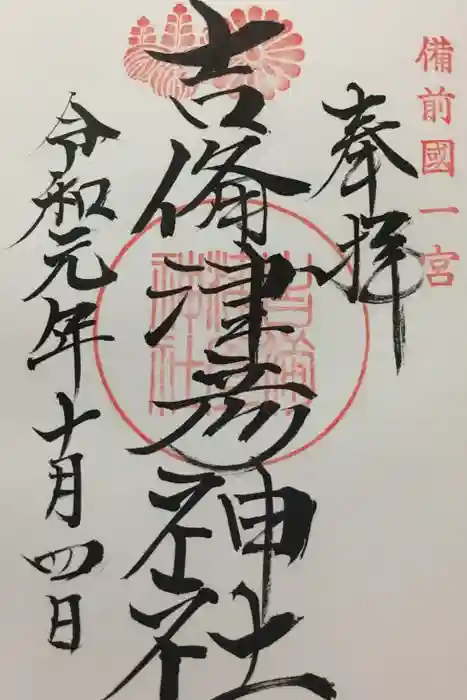 備前國一宮
奉拝
吉備津彦神社
令和元年十月四日